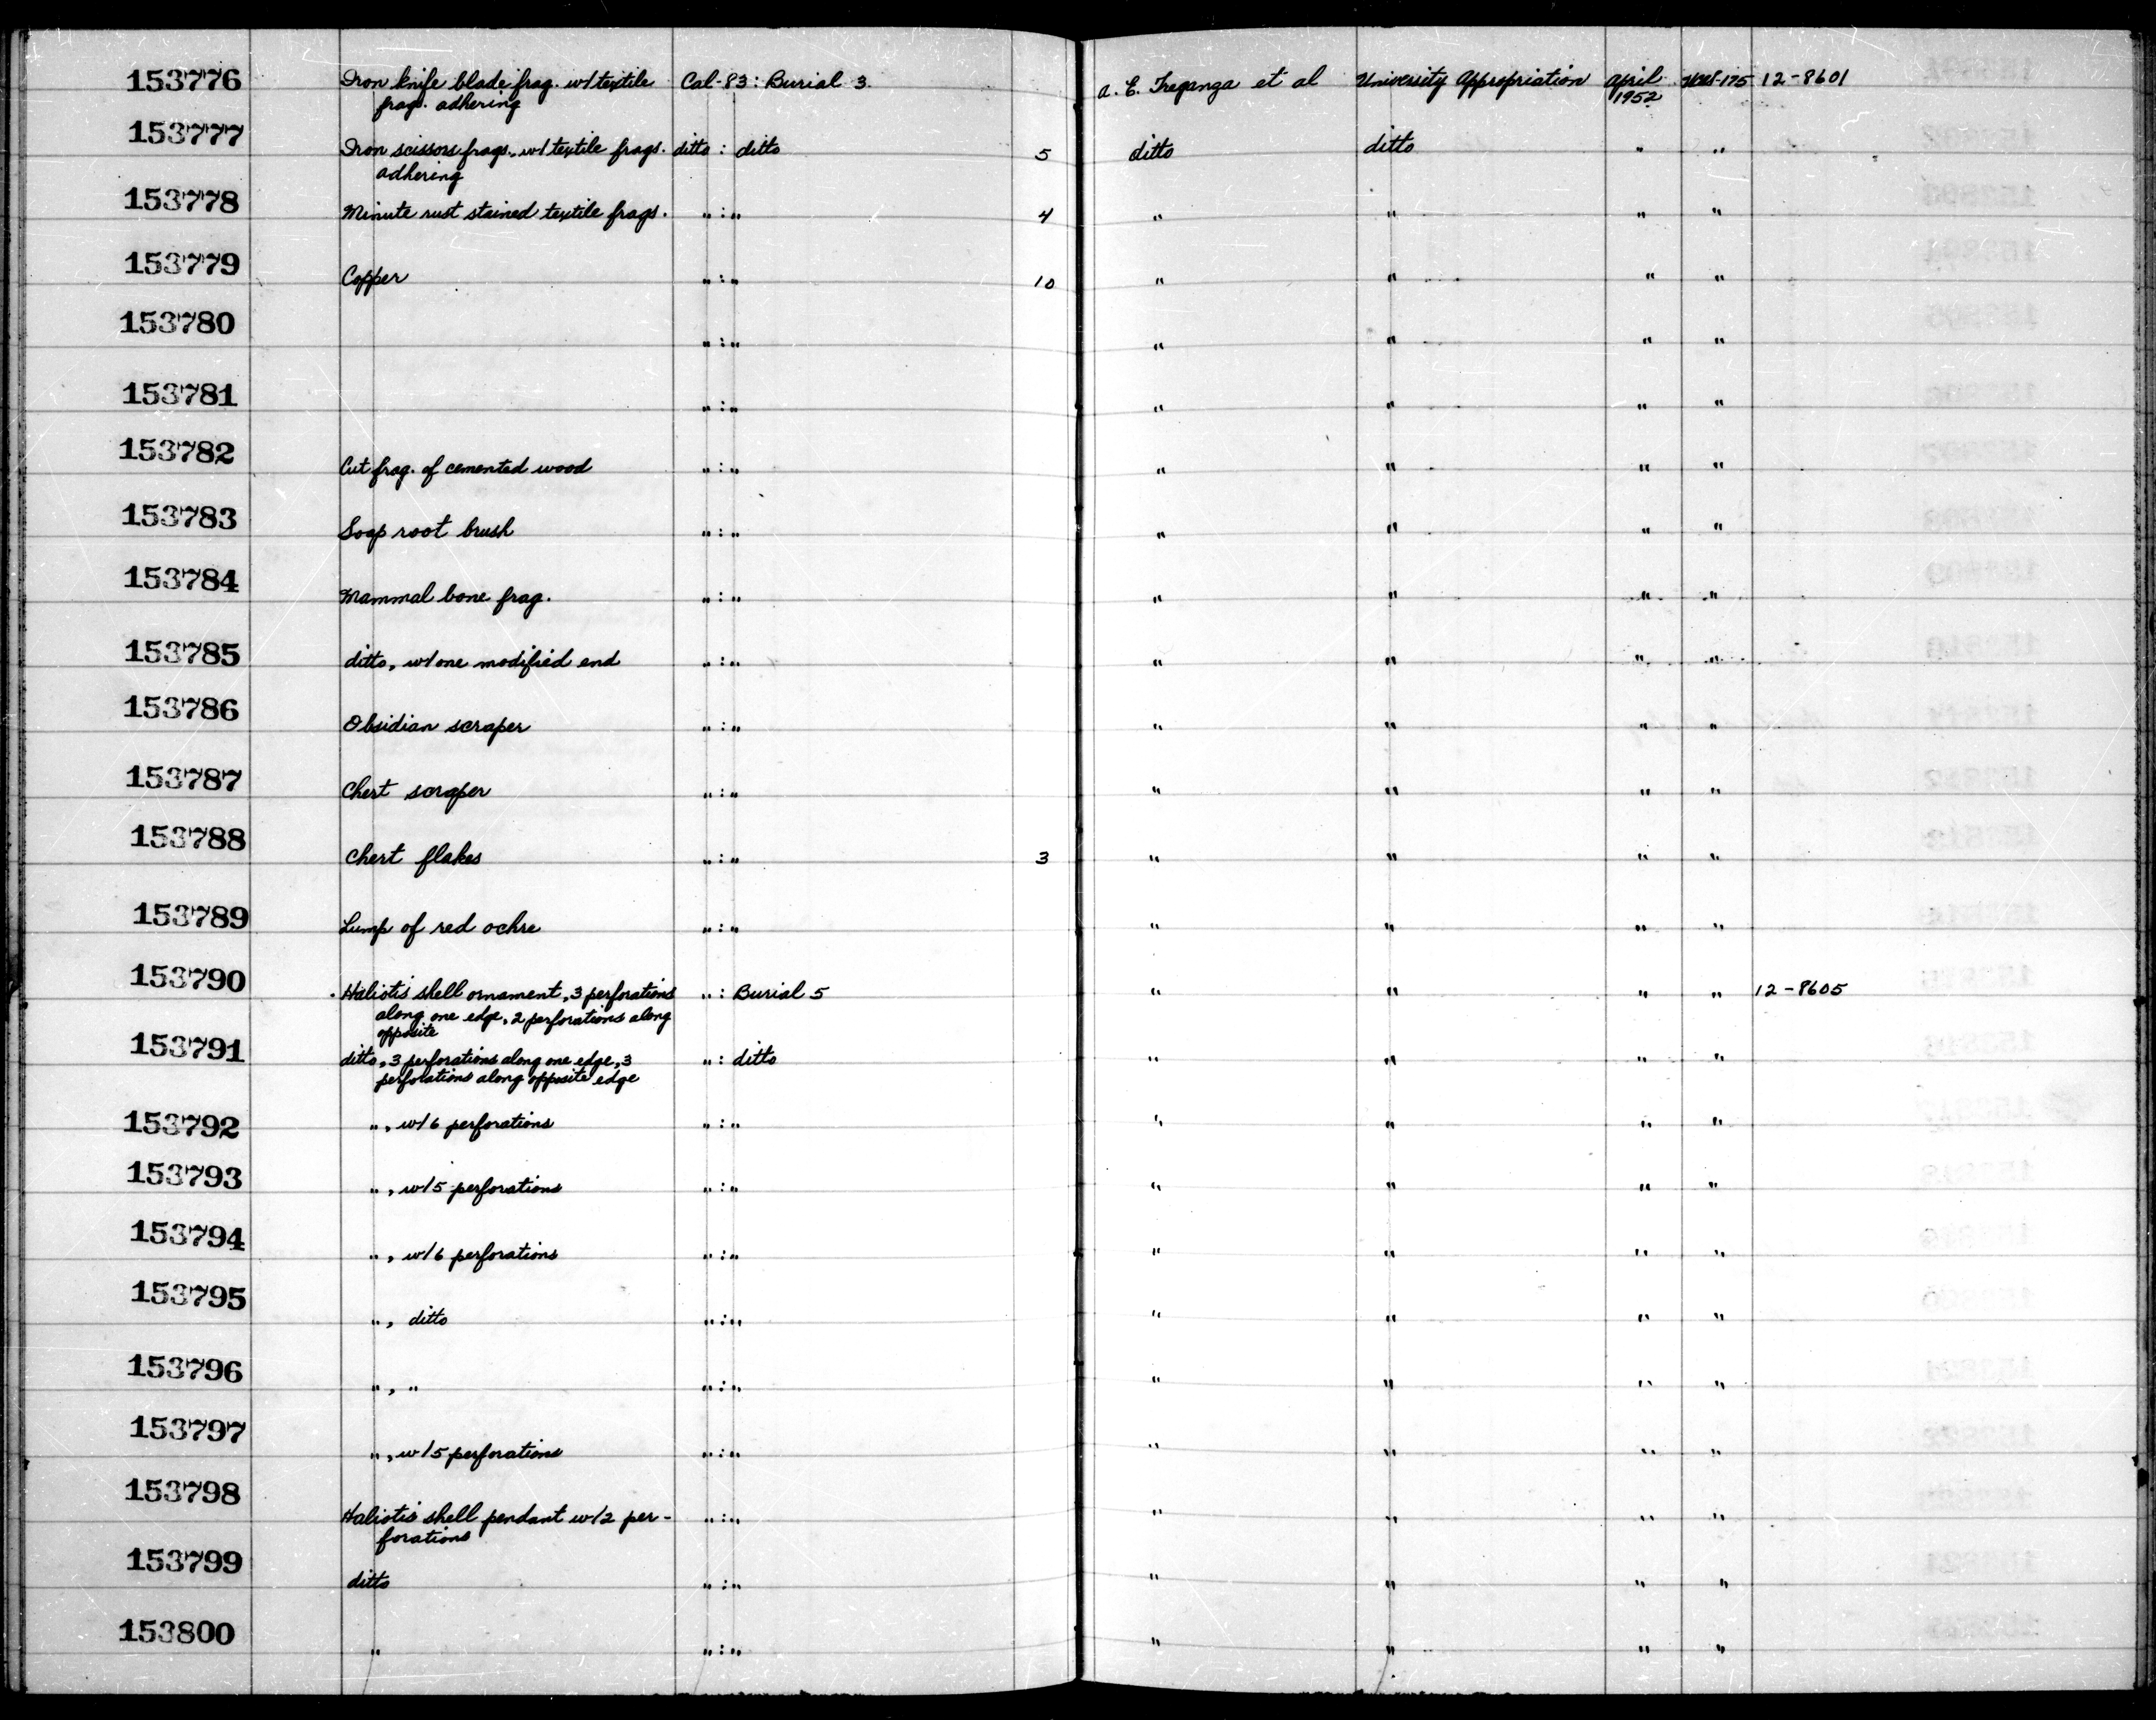 153776 Iron knife blade frag. w/ textile Cal-83: Burial 3. a. E. Treganza et al University Appropriation April 175 12-8601
frag. adhering 1952
153777 Iron scissors frags. w/ textile frags. ditto : ditto 5 ditto ditto " "
adhering
153778 Minute rust stained textile frags. " : " 4 " " " "
153779 Copper " : " 10 " " " "
153780 " : " " " " "
153781 " : " " " " "
153782 Cut frag. of cemented wood " : " " " " "
153783 Soap root brush " : " " " " "
153784 Mammal bone frag. " : " " " " "
153785 ditto, w/ one modified end " : " " " " "
153786 Obsidian scraper " : " " " " "
153787 Chert scraper " : " " " " "
153788 Chert flakes " : " 3 " " " "
153789 Lump of red ochre " : " " " " "
153790 Haliotis shell ornament, 3 perforations " : Burial 5 " " " " 12-8605
along one edge, 2 perforations along
opposite
153791 ditto, 3 perforations along one edge, 3 " : ditto " " " "
perforations along opposite edge
153792 ", w/ 6 perforations " : " " " " "
153793 ", w/ 5 perforations " : " " " " "
153794 ", w/ 6 perforations " : " " " " "
153795 ", ditto " : " " " " "
153796 ", " " : " " " " "
153797 ", w/ 5 perforations " : " " " " "
153798 Haliotis shell pendant w/ 2 per- " : " " " " "
forations
153799 ditto " : " " " " "
153800 " " : " " " " "